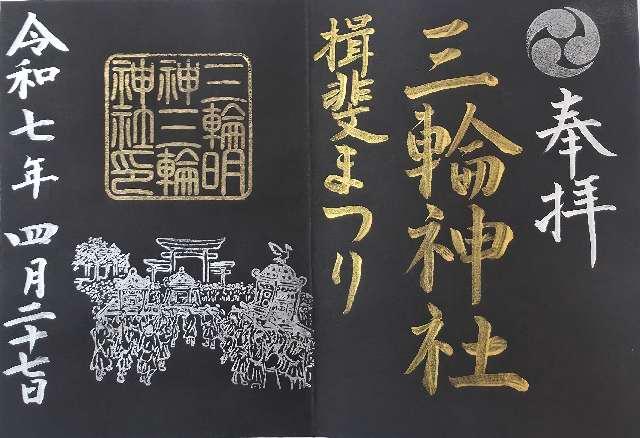 奉拝
三輪神社
揖斐まつり
三輪明
神三輪
神社印
令和七年 四月二十七日